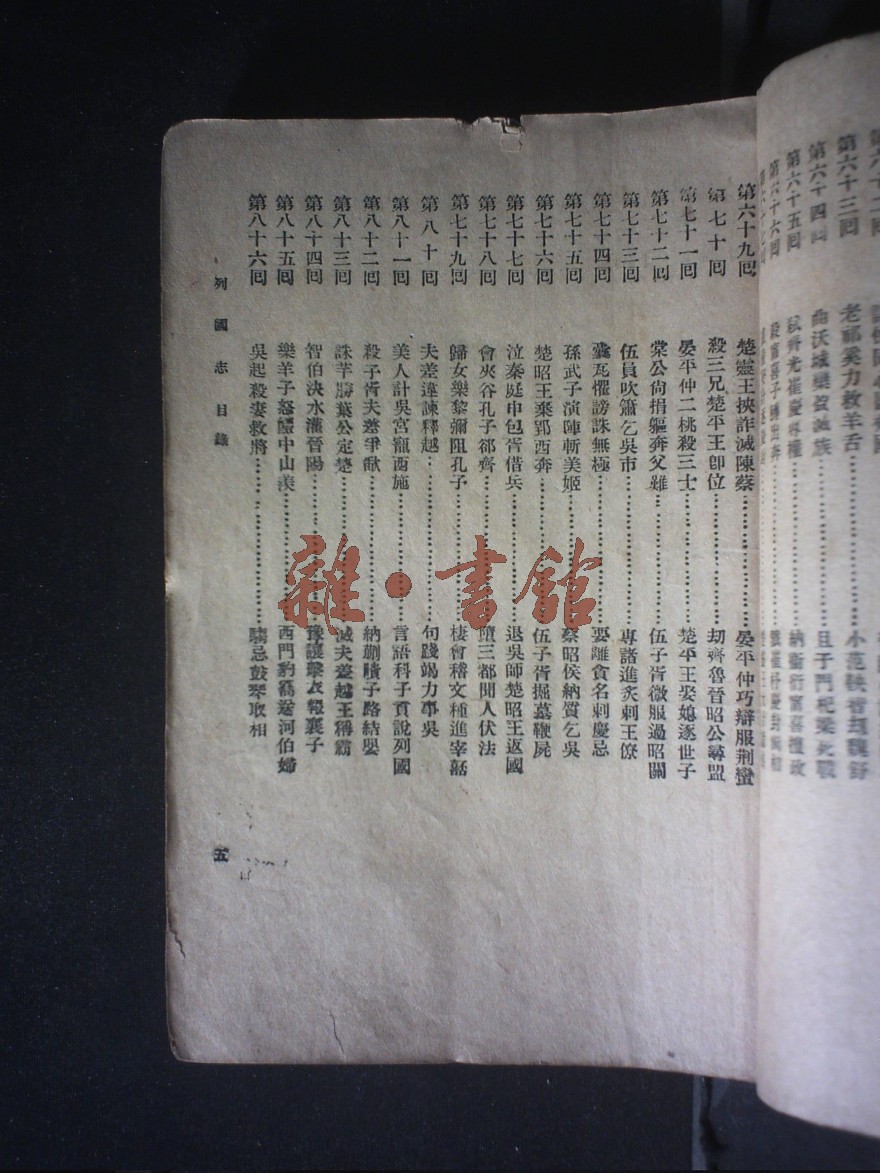 第六十三回 老祁奚力救羊舌
第六十四回 曲沃城欒盈滅族……且于門杞梁死戰
第六十五回 弒齊光崔慶專權……納衛衎甯喜擅政
第六十六回
第六十九回 楚靈王挾詐滅陳蔡……晏平仲巧辯服荆蠻
第七十回 殺三兄楚平王卽位……刧齊魯晉昭公尋盟
第七十一回 晏平仲二桃殺三士……楚平王娶媳逐世子
第七十二回 棠公尙捐軀奔父難……伍子胥微服過昭關
第七十三回 伍員吹簫乞吳市……專諸進炙刺王僚
第七十四回 囊瓦懼謗誅無極……要離貪名刺慶忌
第七十五回 孫武子演陣斬美姬……蔡昭侯納質乞吳
第七十六回 楚昭王棄郢西奔……伍子胥掘墓鞭屍
第七十七回 泣秦庭申包胥借兵……退吳師楚昭王返國
第七十八回 會夾谷孔子郤齊……墮三都聞人伏法
第七十九回 歸女樂黎彌阻孔子……棲會稽文種進宰嚭
第八十回 夫差違諫釋越……句踐竭力事吳
第八十一回 美人計吳宮寵西施……言語科子貢說列國
第八十二回 殺子胥夫差爭歃……納蒯聵子路結纓
第八十三回 誅芈勝葉公定楚……滅夫差越王稱霸
第八十四回 智伯決水灌晉陽……豫讓擊衣報襄子
第八十五回 樂羊子怒餟中山羹……西門豹喬送河伯婦
第八十六回 吳起殺妻救將……騶忌鼓琴取相
列國志目錄
五
雜·書館